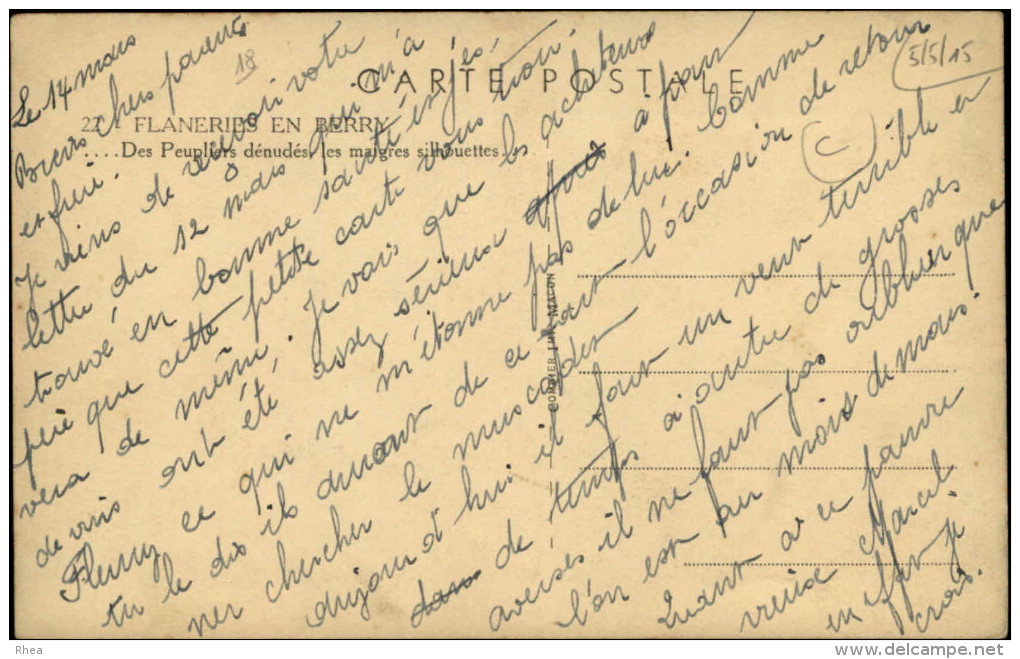 Le 14 mars
18
5/5/15
C
CARTE POSTALE
22 - FLANERIES EN BERRY
.....Des Peupliers dénudés, les maigres silhouettes...
COMBIER IMP. MACON
Biens chers parents
et frère.
Je viens de reçevoir votre
lettre du 12 mars qui m'a
trouvé en bonne santé et j'es-
père que cette petite carte vous trou-
vera de même. Je vois que les acheteurs
de vins ont été assez sérieux à part
Fleury ce qui ne m'étonne pas de lui. comme
tu le dis ils auront de ce fait l'occasion de retour
ner chercher le muscadet
aujourd'hui il fait un vent terrible et
de temps à autre de grosses
averses il ne faut pas oublier que
l'on est au mois de mars.
Quant à ce pauvre
Marcel
je
crois.
Rhea
www.delcampe.net